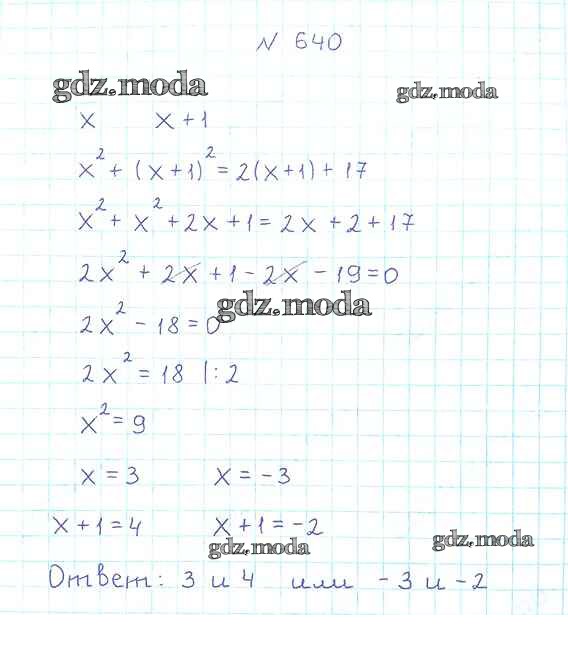 № 640
gdz.moda gdz.moda
x x + 1
x² + (x+1)² = 2(x+1) + 17
x² + x² + 2x + 1 = 2x + 2 + 17
2x² + 2x + 1 - 2x - 19 = 0
gdz.moda
2x² - 18 = 0
2x² = 18 |: 2
x² = 9
x = 3 x = -3
x + 1 = 4 x + 1 = -2
gdz.moda gdz.moda
Ответ: 3 и 4 или -3 и -2